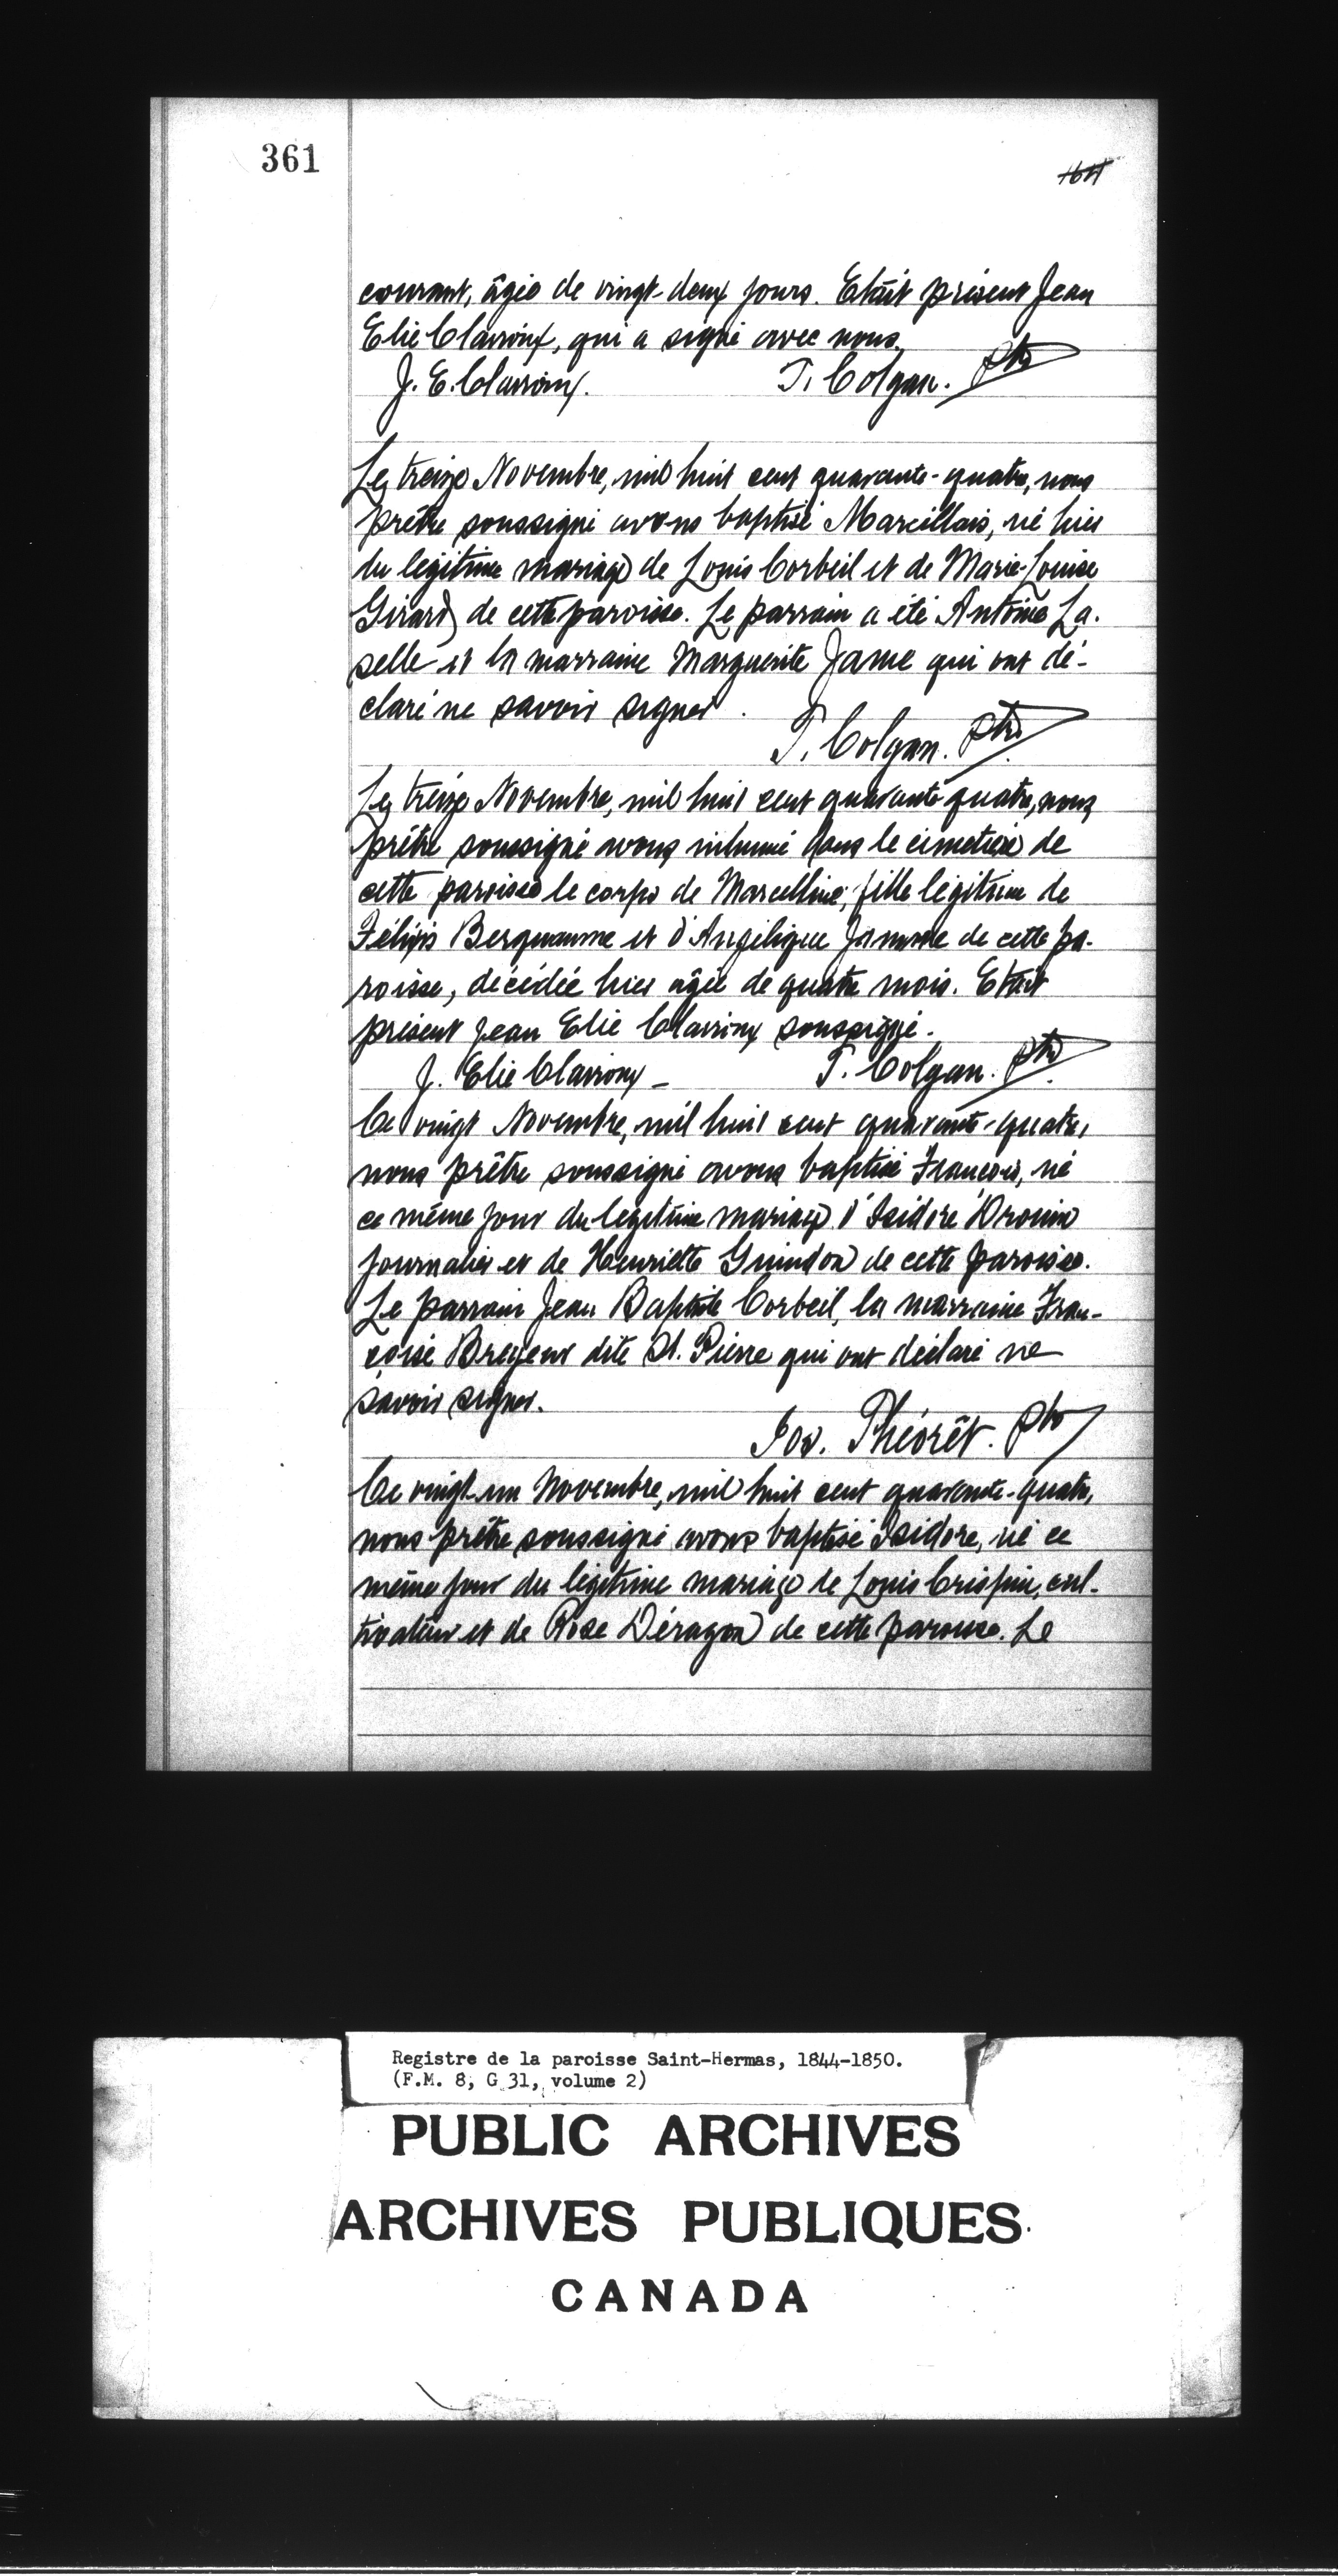 361
courant, âgée de vingt-deux jours. Etait présent Jean
Elie Clairoux, qui a signé avec nous.
J. E. Clairoux. T. Colgan. ptre
Le treize Novembre, mil huit cent quarante-quatre, nous
prêtre soussigné avons baptisé Marcillais, né hier
du légitime mariage de Louis Corbeil et de Marie-Louise
Girard de cette paroisse. Le parrain a été Antoine La-
selle et la marraine Marguerite Jame qui ont dé-
claré ne savoir signer.
T. Colgan. ptre
Le treize Novembre, mil huit cent quarante quatre, nous
prêtre soussigné avons inhumé dans le cimetière de
cette paroisse le corps de Marcelline, fille légitime de
Félixis Berquaume et d'Angélique Jamme de cette pa-
roisse, décédée hier âgée de quatre mois. Etait
présent Jean Elie Clairoux soussigné.
J. Elie Clairoux - T. Colgan. ptre
Ce vingt Novembre, mil huit cent quarante-quatre,
nous prêtre soussigné avons baptisé François, né
ce même jour du légitime mariage d'Isidore Drouin
journalier et de Henriette Guindon de cette paroisse.
Le parrain Jean Baptiste Corbeil, la marraine Fran-
çoise Breyeur dite St. Pierre qui ont déclaré ne
savoir signer.
Jos. Théorêt. ptre
Ce vingt-un Novembre, mil huit cent quarante-quatre,
nous prêtre soussigné avons baptisé Isidore, né ce
même jour du légitime mariage de Louis Crispin, cul-
tivateur et de Rose Déragon de cette paroisse. Le
Registre de la paroisse Saint-Hermas, 1844-1850.
(F.M. 8, G 31, volume 2)
PUBLIC ARCHIVES
ARCHIVES PUBLIQUES
CANADA